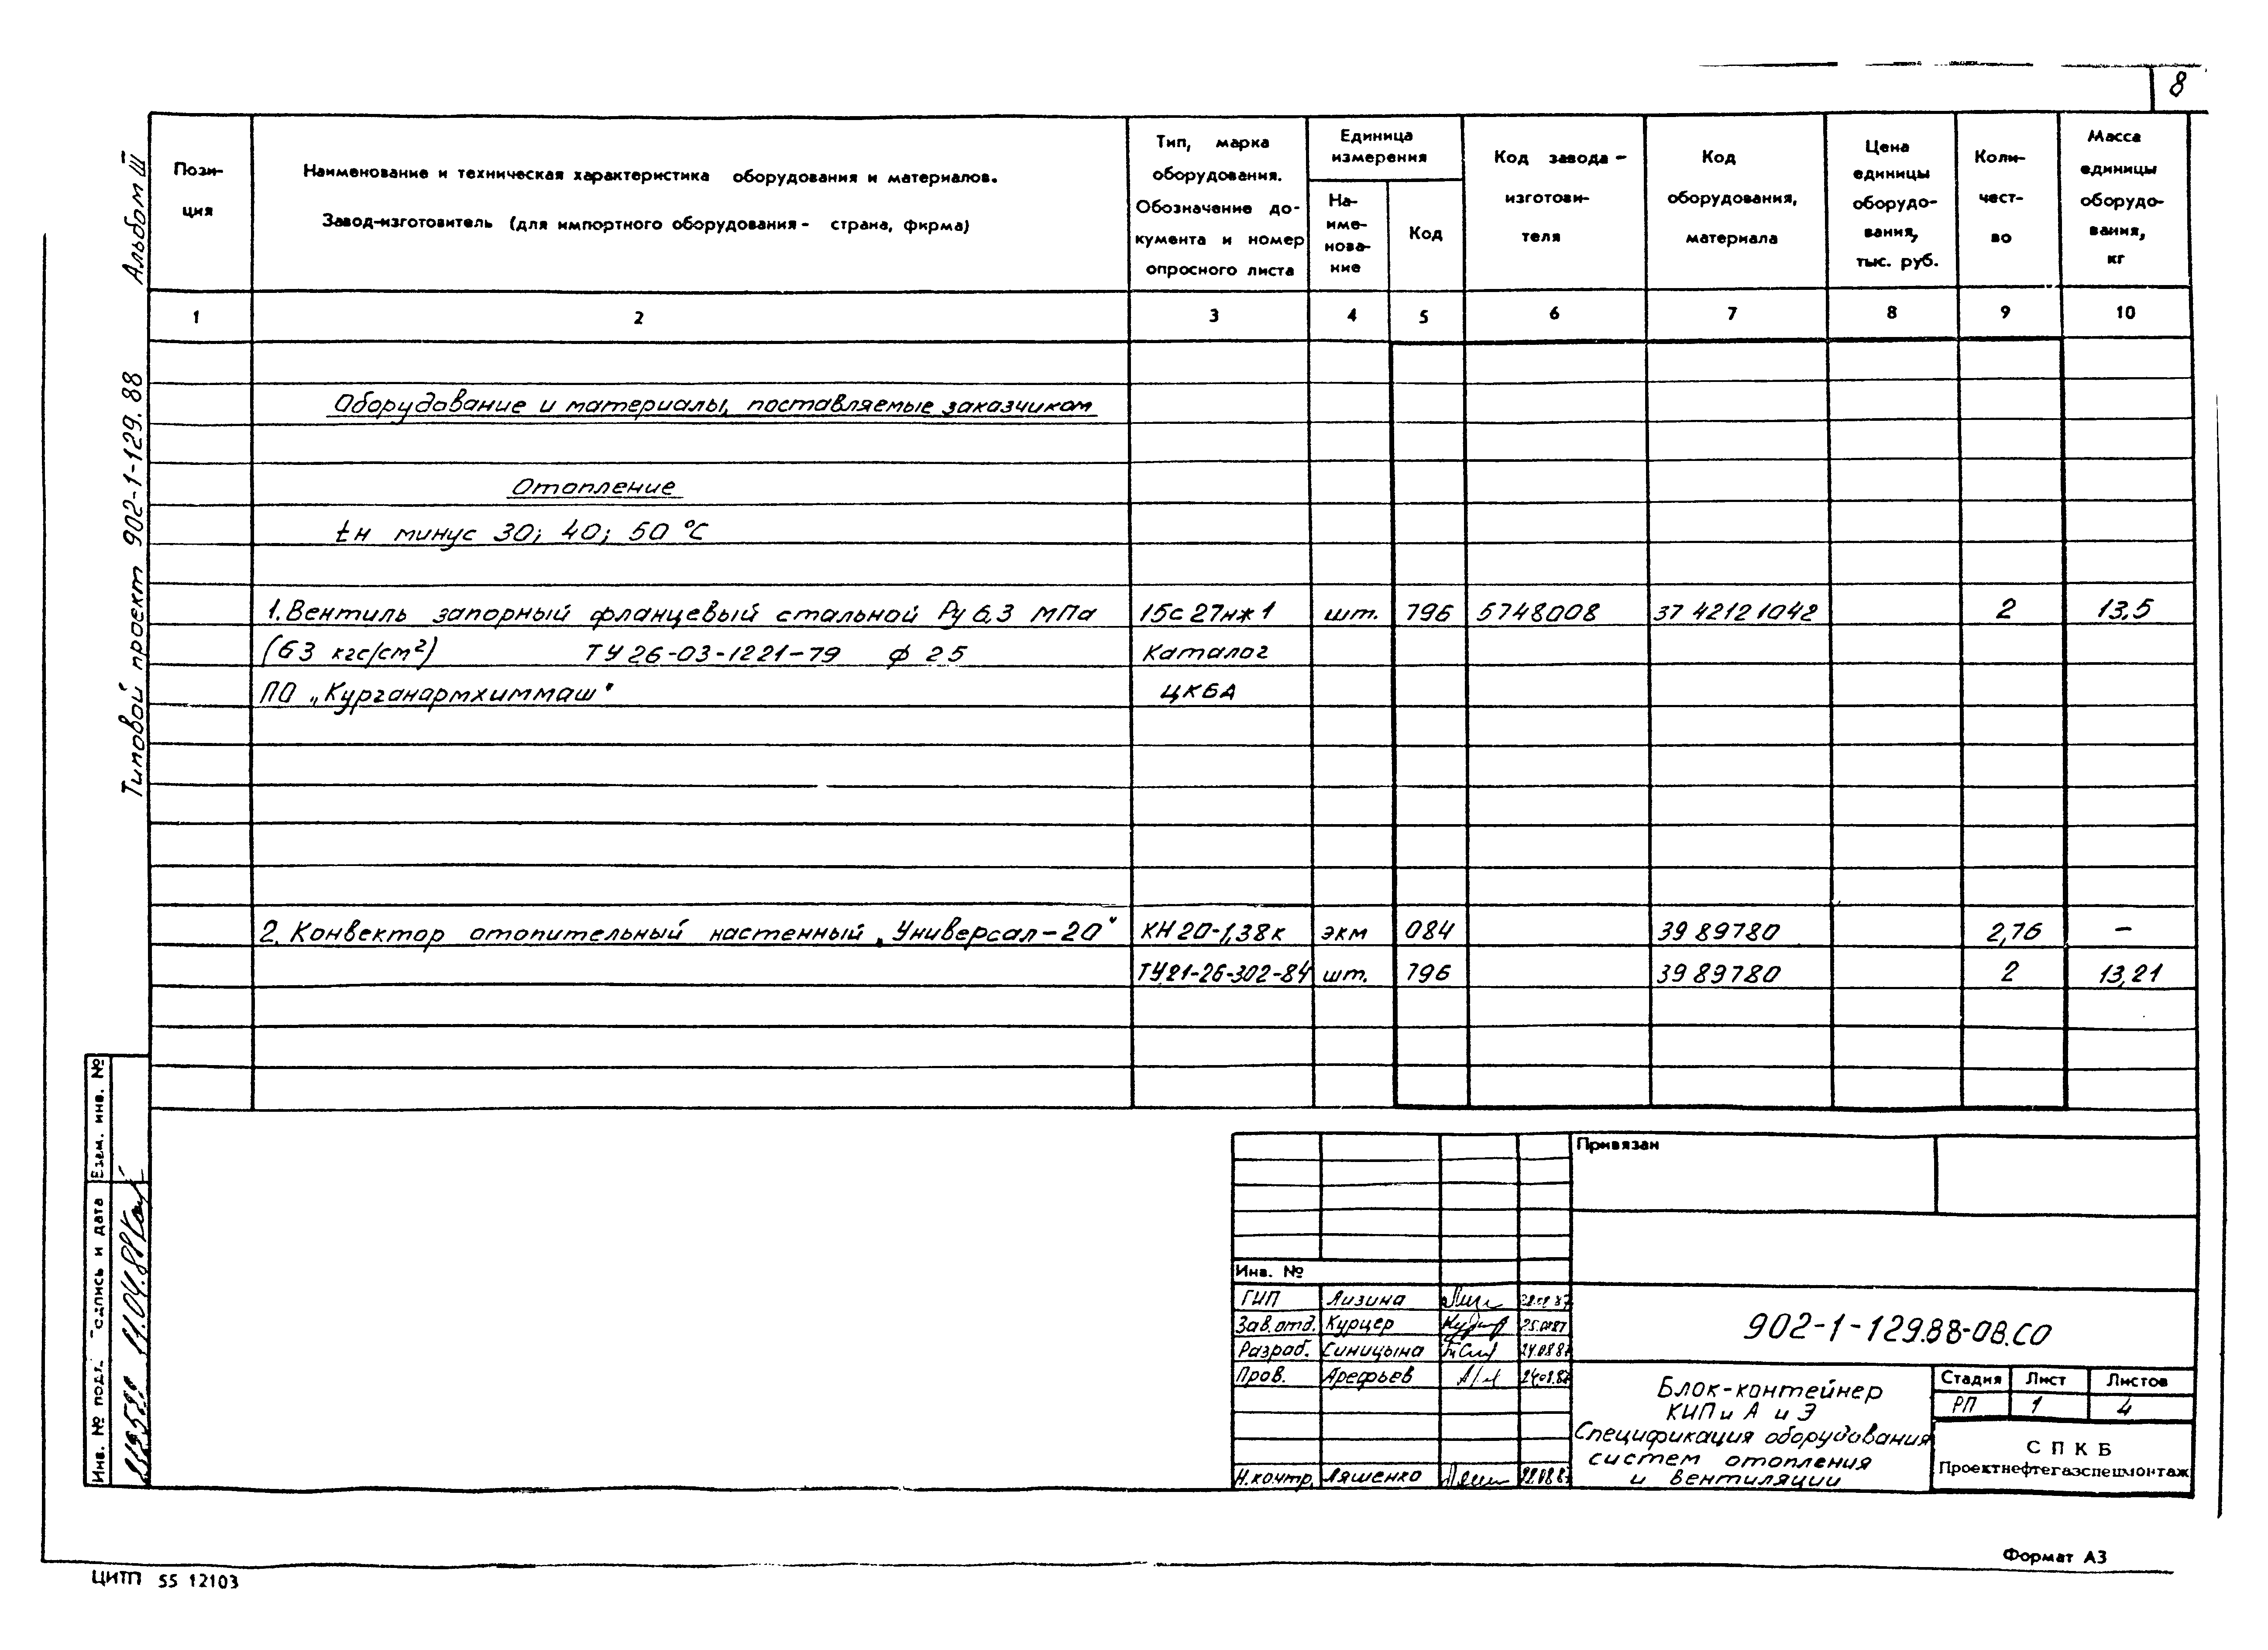 8
Альбом III
Типовой проект 902-1-129.88
Пози-
ция
Наименование и техническая характеристика оборудования и материалов.
Завод-изготовитель (для импортного оборудования - страна, фирма)
Тип, марка
оборудования.
Обозначение до-
кумента и номер
опросного листа
Единица
измерения
На-
име-
нова-
ние
Код
Код завода-
изготови-
теля
Код
оборудования,
материала
Цена
единицы
оборудо-
вания,
тыс. руб.
Коли-
чест-
во
Масса
единицы
оборудо-
вания,
кг
1 2 3 4 5 6 7 8 9 10
Оборудование и материалы, поставляемые заказчиком
Отопление
tн минус 30; 40; 50 °С
1. Вентиль запорный фланцевый стальной Ру 6,3 МПа 15с27нж1 шт. 796 5748008 37 4212 1042 2 13,5
(63 кгс/см²) ТУ 26-03-1221-79 ф 25 Каталог
ПО „Курганармхиммаш" ЦКБА
2. Конвектор отопительный настенный „Универсал-20" КН20-1,38к экм 084 39 89780 2,76 –
ТУ21-26-302-84 шт. 796 39 89780 2 13,21
Взам. инв. №
Подпись и дата
11.04.88
Инв. № подл.
Привязан
Инв. №
ГИП Лизина
Зав.отд. Курцер
Разраб. Синицына 24.08.87
Пров. Арефьев 24.08.87
Н.контр. Ляшенко
902-1-129.88-ОВ.СО
Блок-контейнер
КИП и А и Э
Спецификация оборудования
систем отопления
и вентиляции
Стадия Лист Листов
РП 1 4
СПКБ
Проектнефтегазспецмонтаж
Формат А3
ЦИТП 55 12103